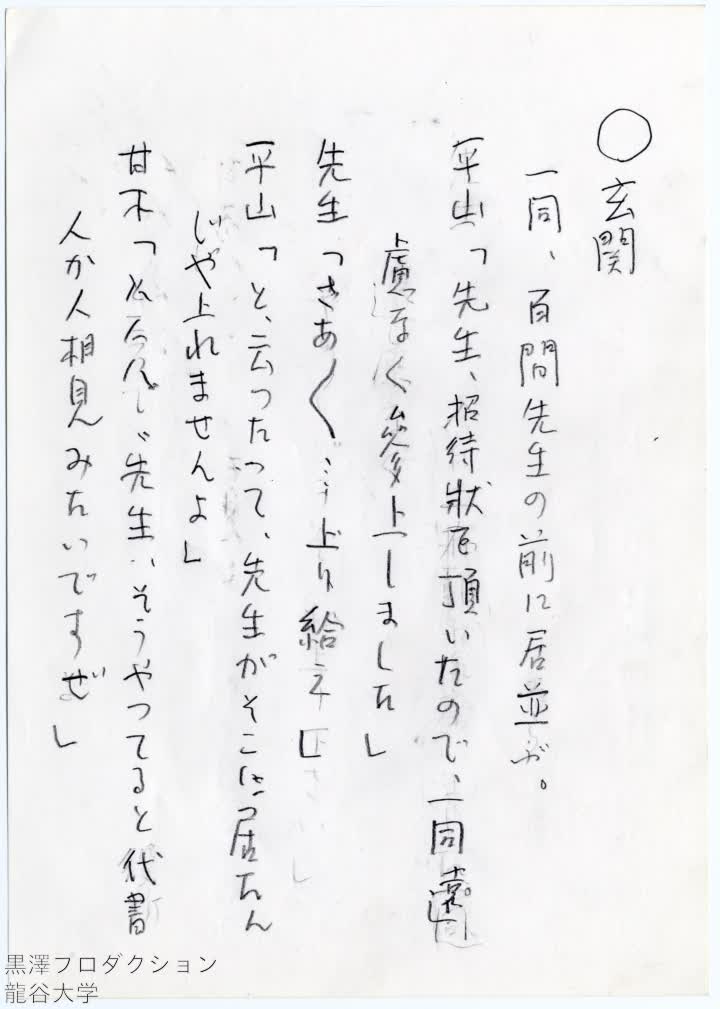 ○玄関
一同、百間先生の前に居並ぶ。
平山「先生、招待狀を頂いたので、一同
慮なく參上しました」
先生「さあ〱…上り給え」
平山「と、云つたつて、先生がそこに居たん
じや上れませんよ」
甘木「先生、そうやつてると代書
人か人相見みたいですぜ」
黒澤プロダクション
龍谷大学